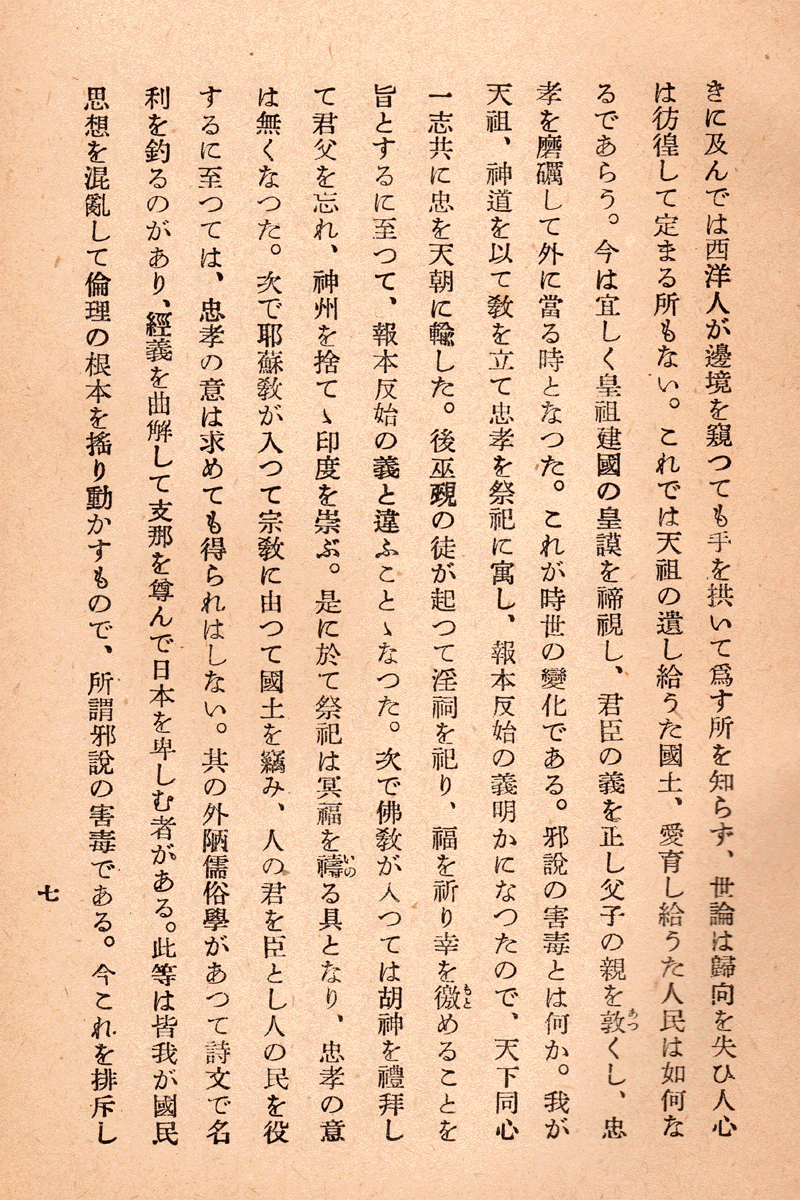 きに及んでは西洋人が邊境を窺つても手を拱いて爲す所を知らず、世論は歸向を失ひ人心
は彷徨して定まる所もない。これでは天祖の遺し給うた國土、愛育し給うた人民は如何な
るであらう。今は宜しく皇祖建國の皇謨を禘視し、君臣の義を正し父子の親を敦くし、忠
孝を磨礪して外に當る時となつた。これが時世の變化である。邪說の害毒とは何か。我が
天祖、神道を以て敎を立て忠孝を祭祀に寓し、報本反始の義明かになつたので、天下同心
一志共に忠を天朝に輸した。後巫覡の徒が起つて淫祠を祀り、福を祈り幸を徼めることを
旨とするに至つて、報本反始の義と違ふことゝなつた。次で佛敎が入つては胡神を禮拜し
て君父を忘れ、神州を捨てゝ印度を崇ぶ。是に於て祭祀は冥福を禱る具となり、忠孝の意
は無くなつた。次で耶蘇敎が入つて宗敎に由つて國土を竊み、人の君を臣とし人の民を役
するに至つては、忠孝の意は求めても得られはしない。其の外陋儒俗學があつて詩文で名
利を釣るのがあり、經義を曲解して支那を尊んで日本を卑しむ者がある。此等は皆我が國民
思想を混亂して倫理の根本を搖り動かすもので、所謂邪說の害毒である。今これを排斥し
七
あつ
もと
いの